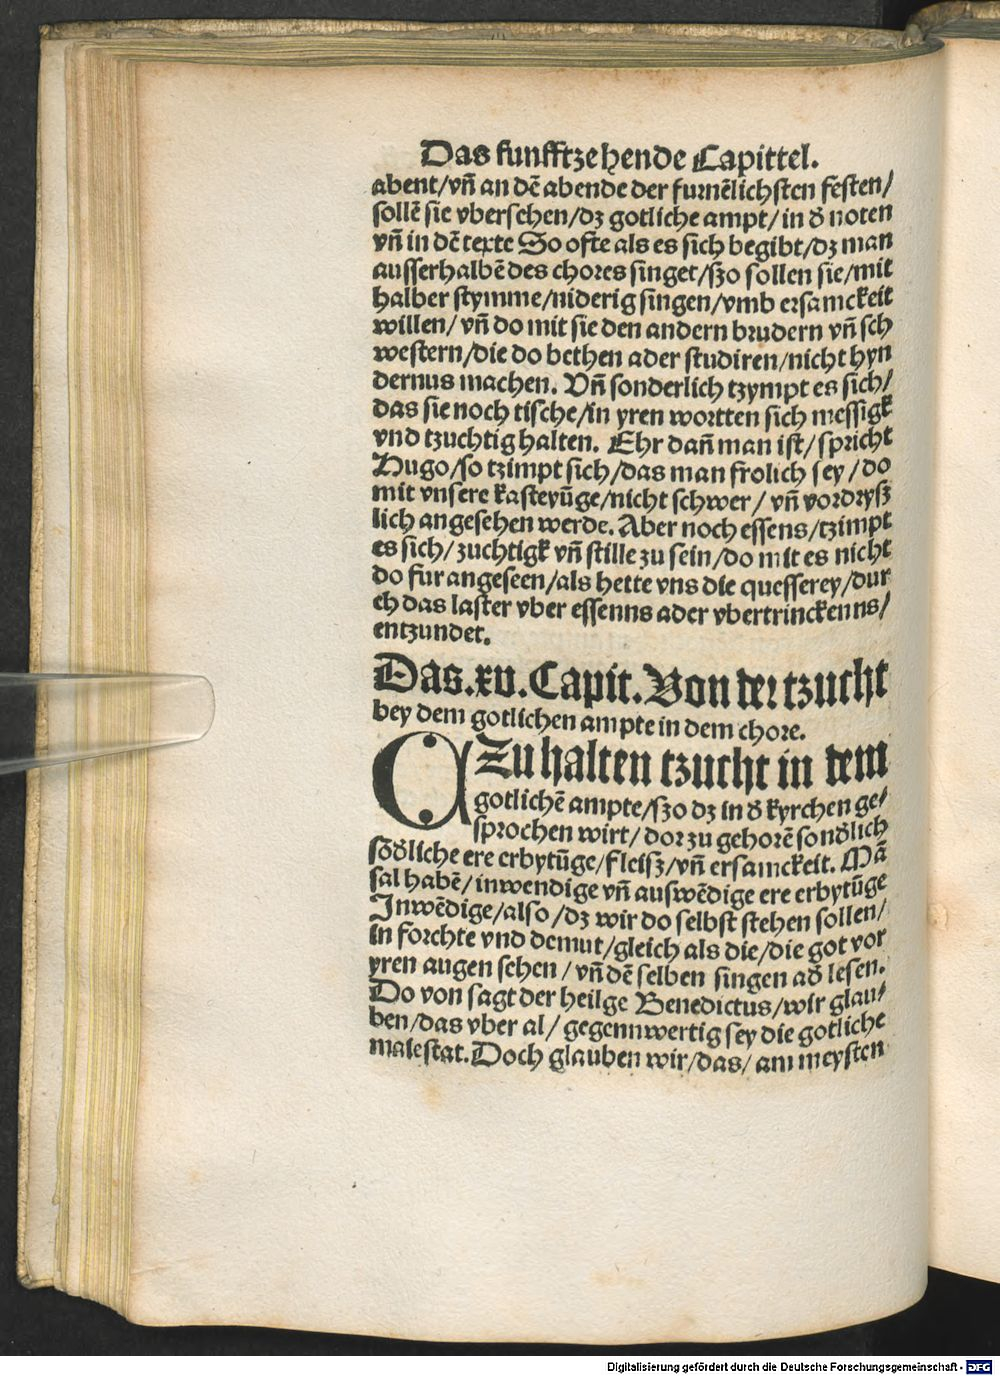 Das funfftzehende Capittel.
abent/vn̄ an dē abende der furnēlichsten festen/
sollē sie vbersehen/dz gotliche ampt/in d̕ noten
vn̄ in dē texte So ofte als es sich begibt/dz man
ausserhalbē des chores singet/szo sollen sie/mit
halber stymme/niderig singen/vmb ersamckeit
willen/ vn̄ do mit sie den andern brudern vn̄ sch
western/die do bethen ader studiren/nicht hyn
dernus machen. Vn̄ sonderlich tzympt es sich/
das sie noch tische/in yren wortten sich messigk
vnd tzuchtig halten. Ehr dan̄ man ist/spricht
Hugo/so tzimpt sich/das man frolich sey/do
mit vnsere kasteyūge/nicht schwer/ vn̄ vordrysz
lich angesehen werde. Aber noch essens/tzimpt
es sich/zuchtigk vn̄ stille zu sein/do mit es nicht
do fur angeseen/als hette vns die quesserey/dur
ch das laster vber essenns ader vbertrinckenns/
entzundet.
Das.xv.Capit.Von der tzucht
bey dem gotlichen ampte in dem chore.
CZu halten tzucht in dem
gotlichē ampte/szo dz in d̕ kyrchen ge/
sprochen wirt/dor zu gehorē sond̕lich
sōd̕liche ere erbytūge/fleisz/vn̄ ersamckeit. Mā
sal habē/inwendige vn̄ auswēdige ere erbytūge
Inwēdige/also/dz wir do selbst stehen sollen/
in forchte vnd demut/gleich als die/die got vor
yren augen sehen/vn̄ dē selben singen ad̕ lesen.
Do von sagt der heilge Benedictus/wir glau/
ben/das vber al/gegennwertig sey die gotliche
maiestat. Doch glauben wir/das/am meysten
Digitalisierung gefördert durch die Deutsche Forschungsgemeinschaft - DFG